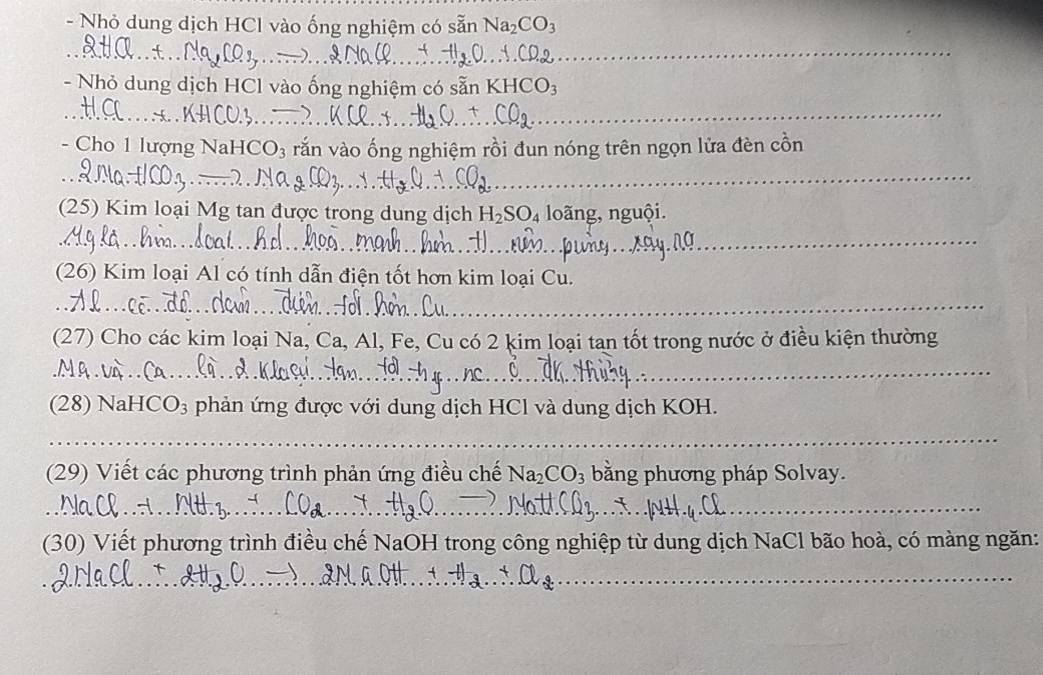 - Nhỏ dung dịch HCl vào ống nghiệm có sẵn Na₂CO₃
2HCl + Na₂CO₃ → 2NaCl + H₂O + CO₂
- Nhỏ dung dịch HCl vào ống nghiệm có sẵn KHCO₃
HCl + KHCO₃ → KCl + H₂O + CO₂
- Cho 1 lượng NaHCO₃ rắn vào ống nghiệm rồi đun nóng trên ngọn lửa đèn cồn
2NaHCO₃ → Na₂CO₃ + H₂O + CO₂
(25) Kim loại Mg tan được trong dung dịch H₂SO₄ loãng, nguội.
Mg là kim loại hđ hoá mạnh hơn H nên pứng xảy ra
(26) Kim loại Al có tính dẫn điện tốt hơn kim loại Cu.
Al có độ dẫn điện tốt hơn Cu
(27) Cho các kim loại Na, Ca, Al, Fe, Cu có 2 kim loại tan tốt trong nước ở điều kiện thường
Na và Ca là 2 kloại tan tốt nc ở đk thường
(28) NaHCO₃ phản ứng được với dung dịch HCl và dung dịch KOH.
(29) Viết các phương trình phản ứng điều chế Na₂CO₃ bằng phương pháp Solvay.
NaCl + NH₃ + CO₂ + H₂O → NaHCO₃ + NH₄Cl
(30) Viết phương trình điều chế NaOH trong công nghiệp từ dung dịch NaCl bão hoà, có màng ngăn:
2NaCl + 2H₂O → 2NaOH + H₂ + Cl₂